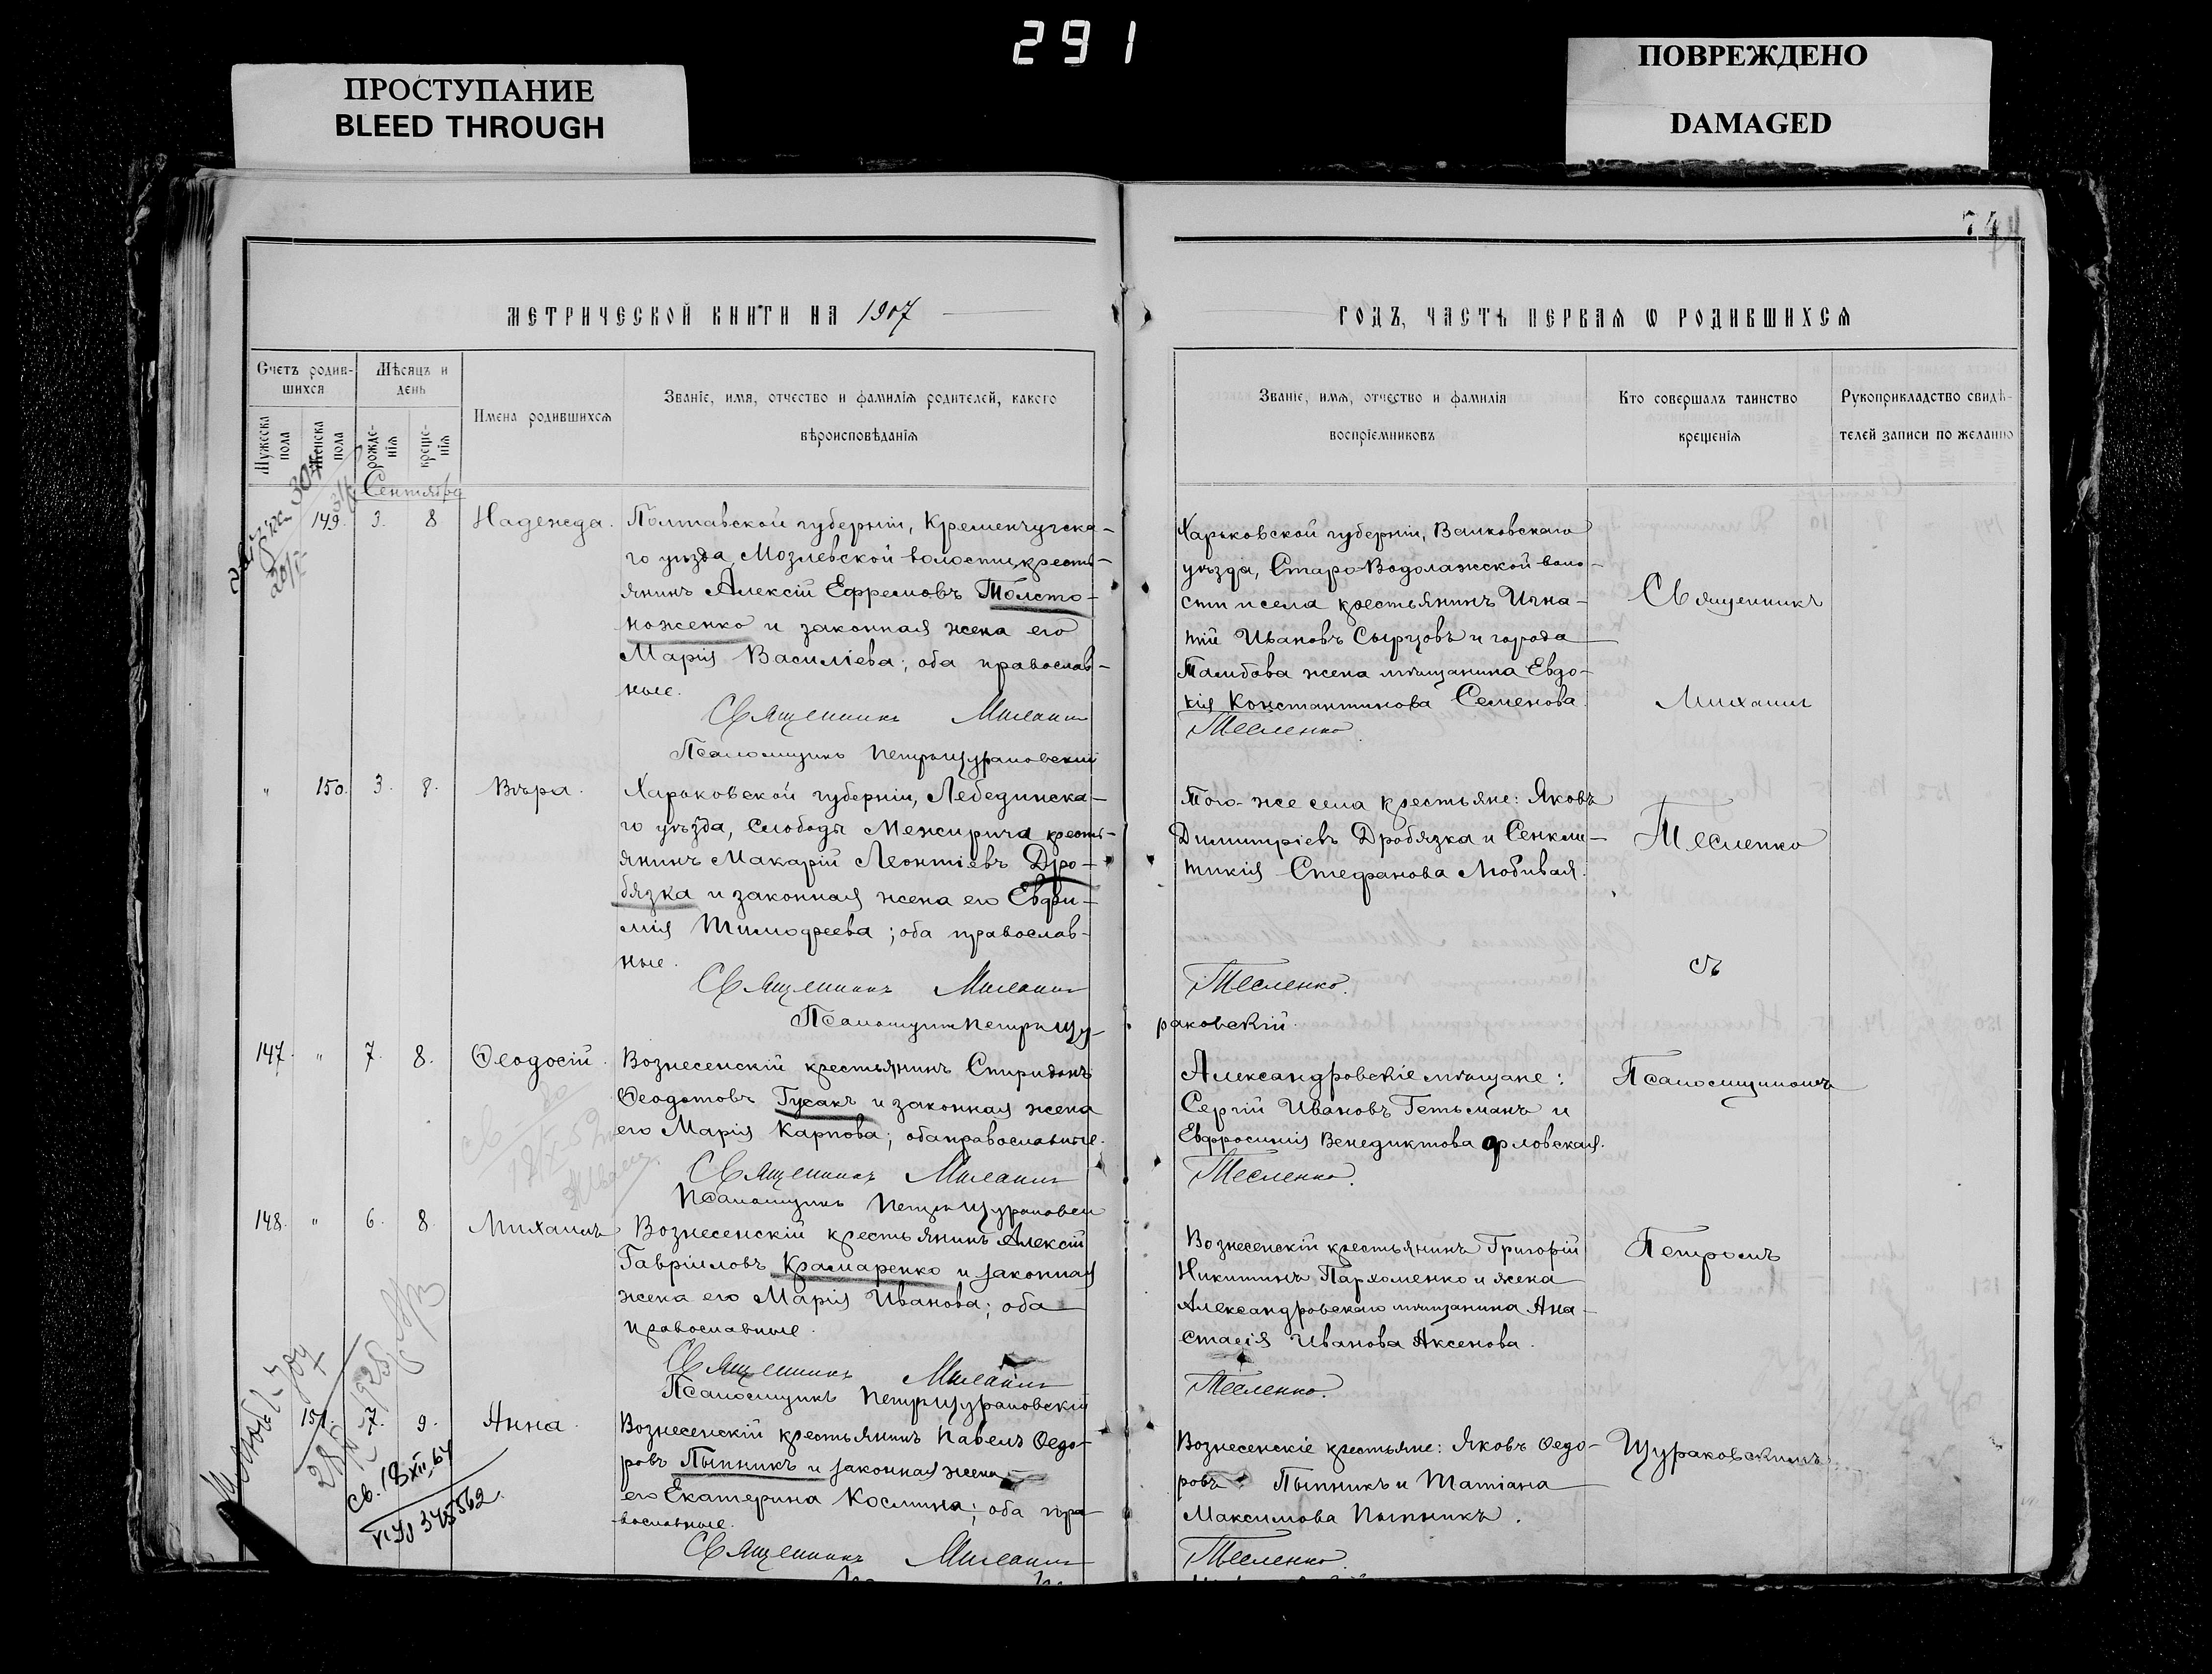 291
ПРОСТУПАНИЕ
BLEED THROUGH
ПОВРЕЖДЕНО
DAMAGED
74
МЕТРИЧЕСКОЙ КНИГИ НА 1907
ГОДЪ, ЧАСТЬ ПЕРВАЯ Ѡ РОДИВШИХСЯ
Счетъ родив-
шихся
Мужеска пола
Женска пола
Мѣсяцъ и
день
рожде-
нія
креще-
нія
Имена родившихся
Званіе, имя, отчество и фамилія родителей, какого
вѣроисповѣданія
Званіе, имя, отчество и фамилія
воспріемниковъ
Кто совершалъ таинство
крещенія
Рукоприкладство свидѣ-
телей записи по желанію
Сентября
149. 3. 8 Надежда. Полтавской губерніи, Кременчугска-
го уѣзда, Мозлевской волости, кресть-
янинъ Алексій Ефремовъ Толсто-
ноженко и законная жена его
Марія Василіева; оба православ-
ные.
Священникъ Михаилъ
Псаломщикъ Петръ Щураковскій
Харьковской губерніи, Валковскаго
уѣзда, Старо-Водолажской воло-
сти и села крестьянинъ Игна-
тій Ивановъ Сырцовъ и города
Тамбова жена мѣщанина Евдо-
кія Константинова Семенова.
Тесленко.
Священникъ
Михаилъ
" 150. 3. 8. Вѣра. Харьковской губерніи, Лебединска-
го уѣзда, слободы Межирича кресть-
янинъ Макарій Леонтіевъ Дро-
бязка и законная жена его Евфи-
мія Тимофеева; оба православ-
ные.
Священникъ Михаилъ
Псаломщикъ Петръ Щу-
Того-же села крестьяне: Яковъ
Димитріевъ Дробязка и Сенкли-
тикія Стефанова Любивая.
Тесленко.
раковскій.
Тесленко
съ
147. " 7. 8. Ѳеодосій. Вознесенскій крестьянинъ Спиридонъ
Ѳеодотовъ Гусакъ и законная жена
его Марія Карпова; оба православные.
Священникъ Михаилъ
Псаломщикъ Петръ Щураковскій
Александровскіе мѣщане:
Сергій Ивановъ Гетьманъ и
Евфросинія Венедиктова Орловская.
Тесленко.
Псаломщикомъ
148. " 6. 8. Михаилъ Вознесенскій крестьянинъ Алексій
Гавріиловъ Крамаренко и законная
жена его Марія Иванова; оба
православные.
Священникъ Михаилъ
Псаломщикъ Петръ Щураковскій
Вознесенскій крестьянинъ Григорій
Никитинъ Пархоменко и жена
Александровскаго мѣщанина Ана-
стасія Иванова Аксенова.
Тесленко.
Петромъ
151. 7. 9. Анна. Вознесенскій крестьянинъ Павелъ Ѳедо-
ровъ Пыпникъ и законная жена
его Екатерина Космина; оба пра-
вославные.
Священникъ Михаилъ
Вознесенскіе крестьяне: Яковъ Ѳедо-
ровъ Пыпникъ и Татіана
Максимова Пыпникъ.
Тесленко.
Щураковскимъ
св. 18 XII 64